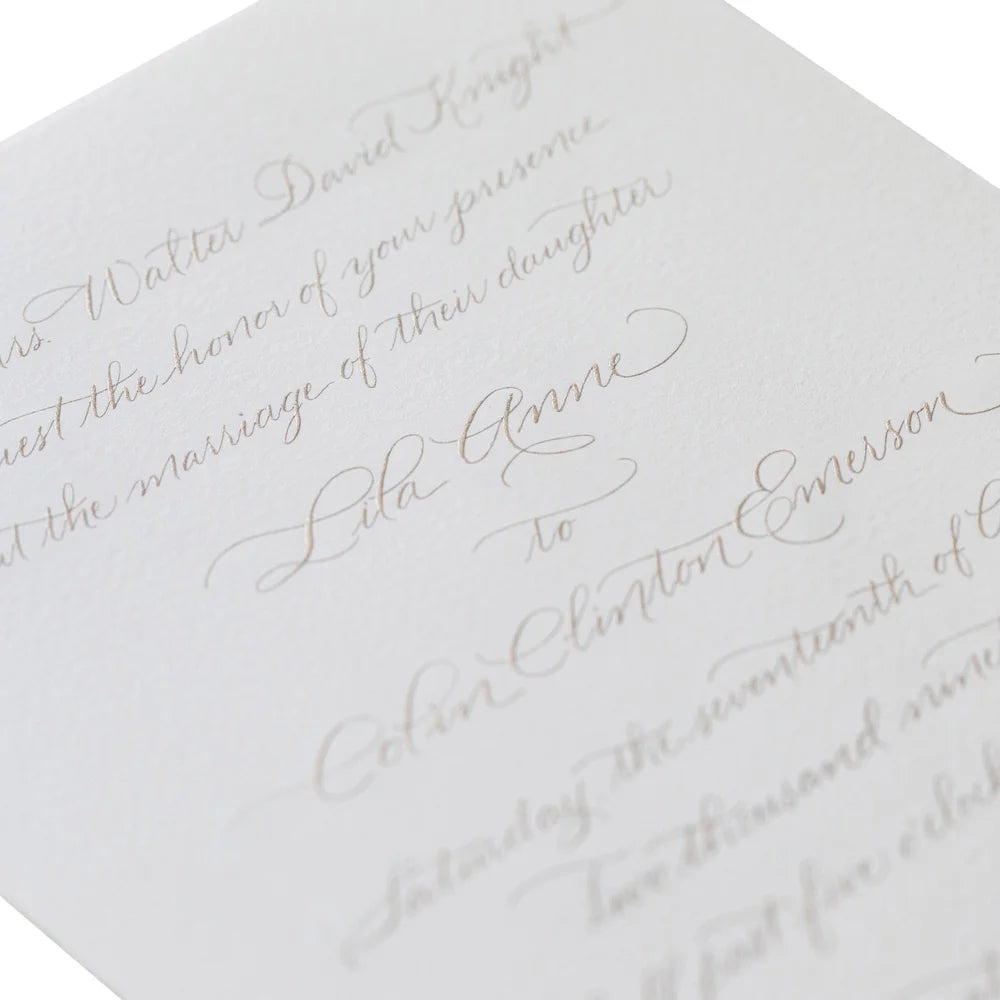 rs. Walter David Knight
uest the honor of your presence
at the marriage of their daughter
Lila Anne
to
Colin Clinton Emerson
Saturday, the seventeenth of
Two thousand ninet
past five o'clock